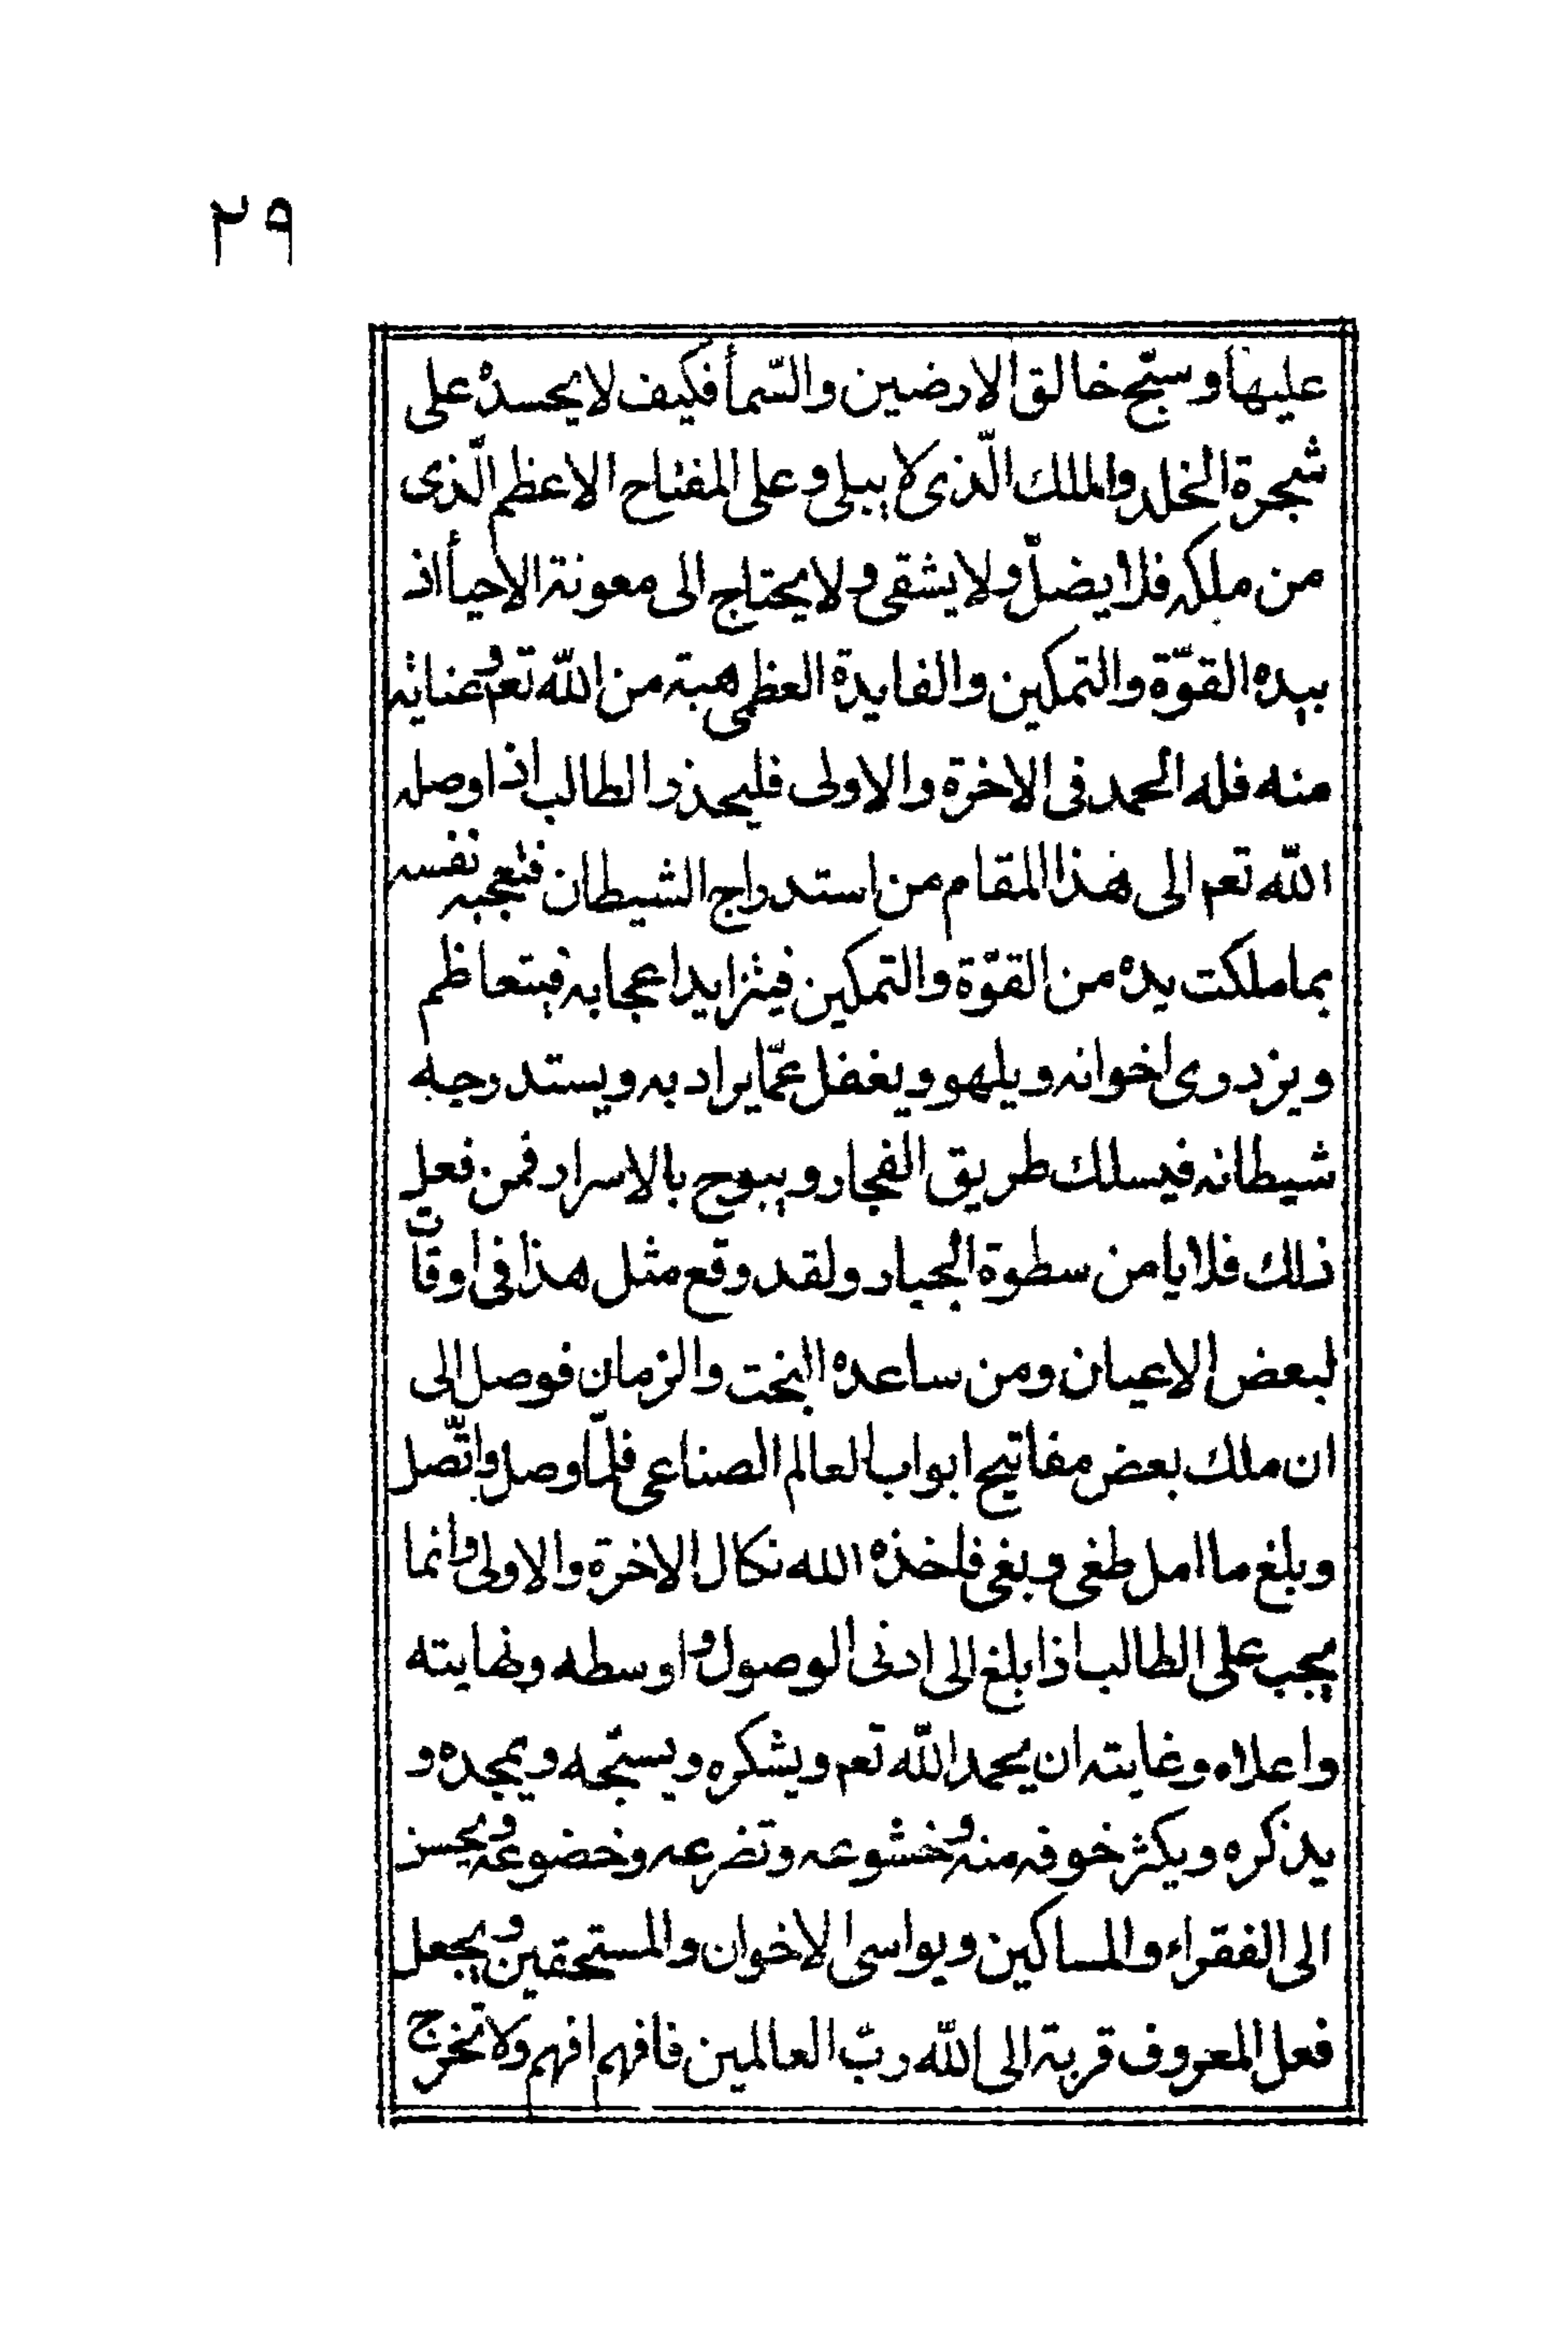 ٢٩
عليها وسبّح خالق الارضين والسّمأ فكيف لا يحسده على
شجرة الخلد والملك الّذى لا يبلى وعلى المفتاح الاعظم الّذى
من ملكه فلا يضلّ ولا يشقى ولا يحتاج الى معونة الاحيأ اذ
بيده القوّة والتمكين والفايدة العظمى هبة من الله تعم وعناية
منه فله الحمد فى الاخرة والاولى فليحذر الطالب اذا وصله
الله تعم الى هذا المقام من استدراج الشيطان فتعجبه نفسه
بما ملكت يده من القوّة والتمكين فيتزايد اعجابه فيتعاظم
ويزدرى اخوانه ويلهو ويغفل عمّا يراد به ويستدرجه
شيطانه فيسلك طريق الفجار ويبوح بالاسرار فمن فعل
ذلك فلا يامن سطوة الجبار ولقد وقع مثل هذا فى اوقات
لبعض الاعيان ومن ساعده البخت والزمان فوصل الى
ان ملك بعض مفاتيح ابواب العالم الصناعى فلمّا وصل واتّصل
وبلغ ما امل طغى وبغى فاخذه الله نكال الاخرة والاولى وانما
يجب على الطالب اذا بلغ الى ادنى الوصول واوسطه ونهايته
واعلاه وغايته ان يحمد الله تعم ويشكره ويسبّحه ويمجده و
يذكره ويكثر خوفه منه وخشوعه وتضرعه وخضوعه ويحسن
الى الفقراء والمساكين ويواسى الاخوان والمستحقين ويجعل
فعل المعروف قربة الى الله ربّ العالمين فافهم افهم ولا تخرج